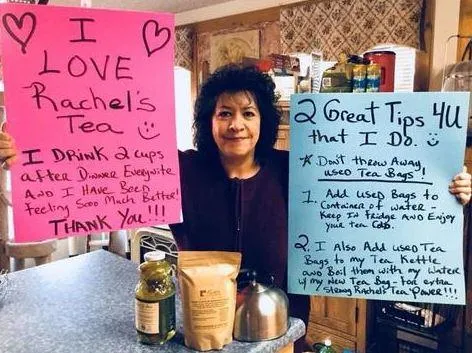 I
LOVE
Rachel's
Tea
I DRINK 2 cups
after Dinner Everynite
AND I Have Been
feeling Sooo Much Better!
THANK You!!!
2 Great Tips 4U
that I Do.
* Don't throw Away
used Tea Bags!
1. Add used Bags to
Container of water -
Keep in fridge and Enjoy
your tea Cold.
2. I Also Add used Tea
Bags to my Tea Kettle
and Boil them with my water
w/ my New Tea Bag - for extra
Strong Rachel's Tea "Power"!!!